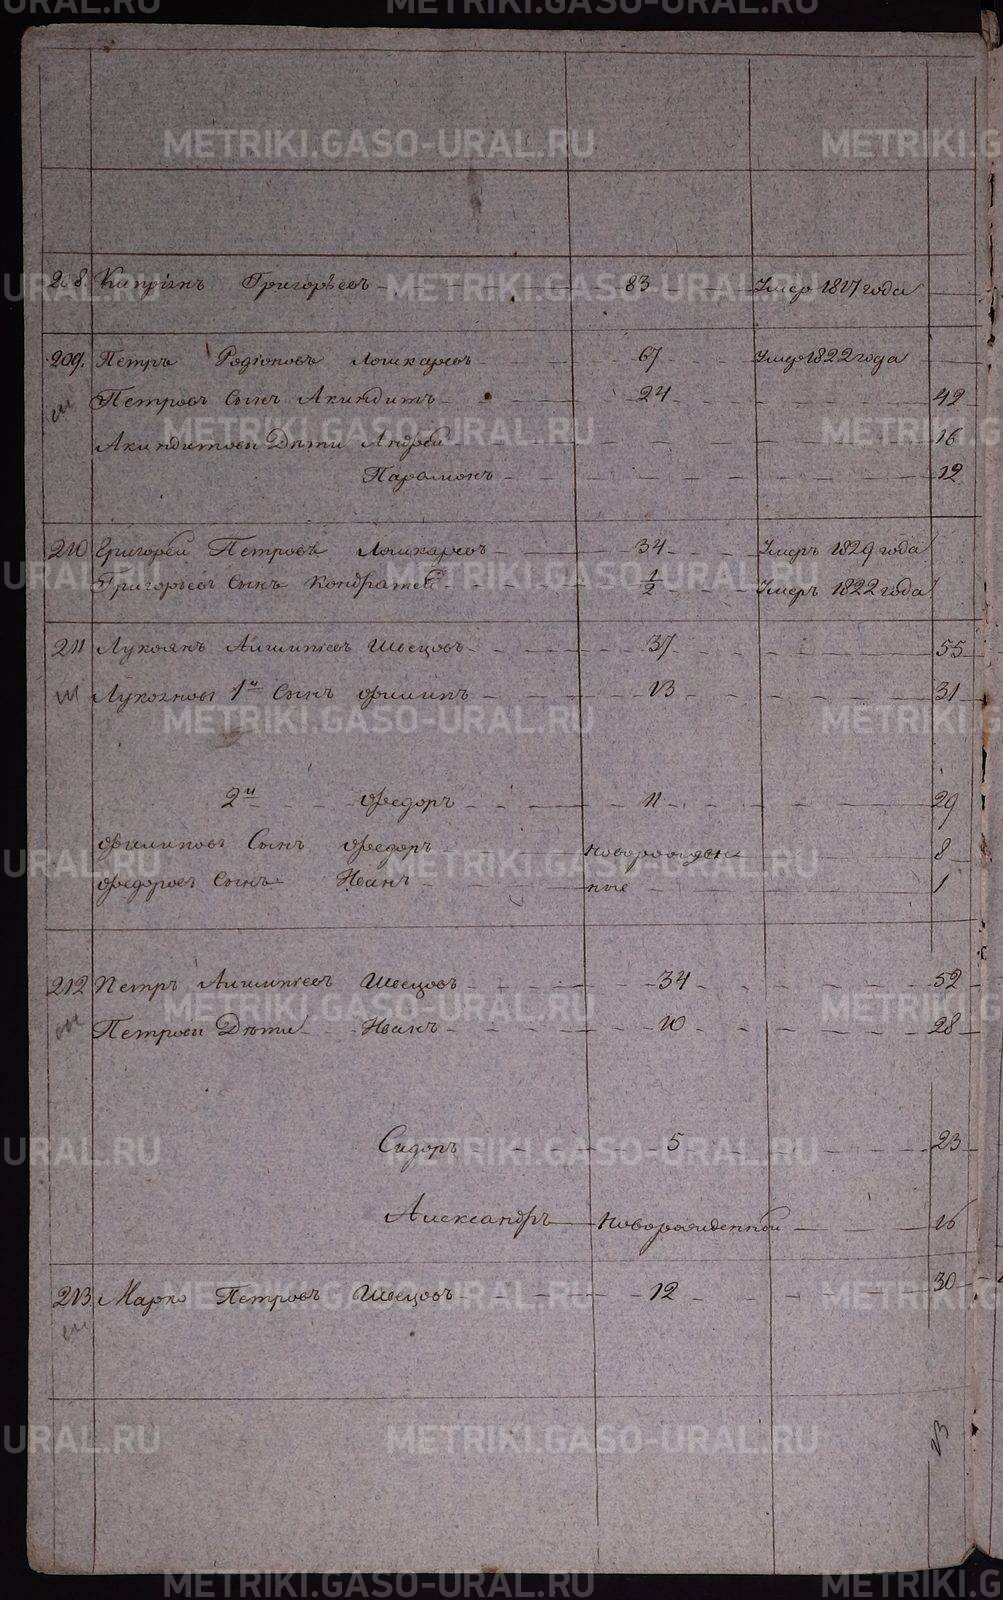 208. Кипріянъ Григорьевъ 83 Умеръ 1817 года
209. Петръ Родіоновъ Лошкаревъ 67 Умеръ 1822 года
Петровъ Сынъ Акиндитъ 24 42
Акиндитовы Дѣти Андрей 16
Парамонъ 12
210 Григорей Петровъ Лошкаревъ 34 Умеръ 1829 года
Григорьевъ Сынъ Кондратей 1/2 Умеръ 1822 года
211 Лукоянъ Швецовъ 37 55
Лукояновы 1й Сынъ Филипъ 13 31
2й Федоръ 11 29
Филиповъ Сынъ Федоръ Новорожден 8
Федоровъ Сынъ Иванъ ные 1
212 Петръ Швецовъ 34 52
Петровы Дѣти Иванъ 10 28
Сидоръ 5 23
Александръ Новорожденной 16
213 Марко Петровъ Швецовъ 12 30
13
METRIKI.GASO-URAL.RU